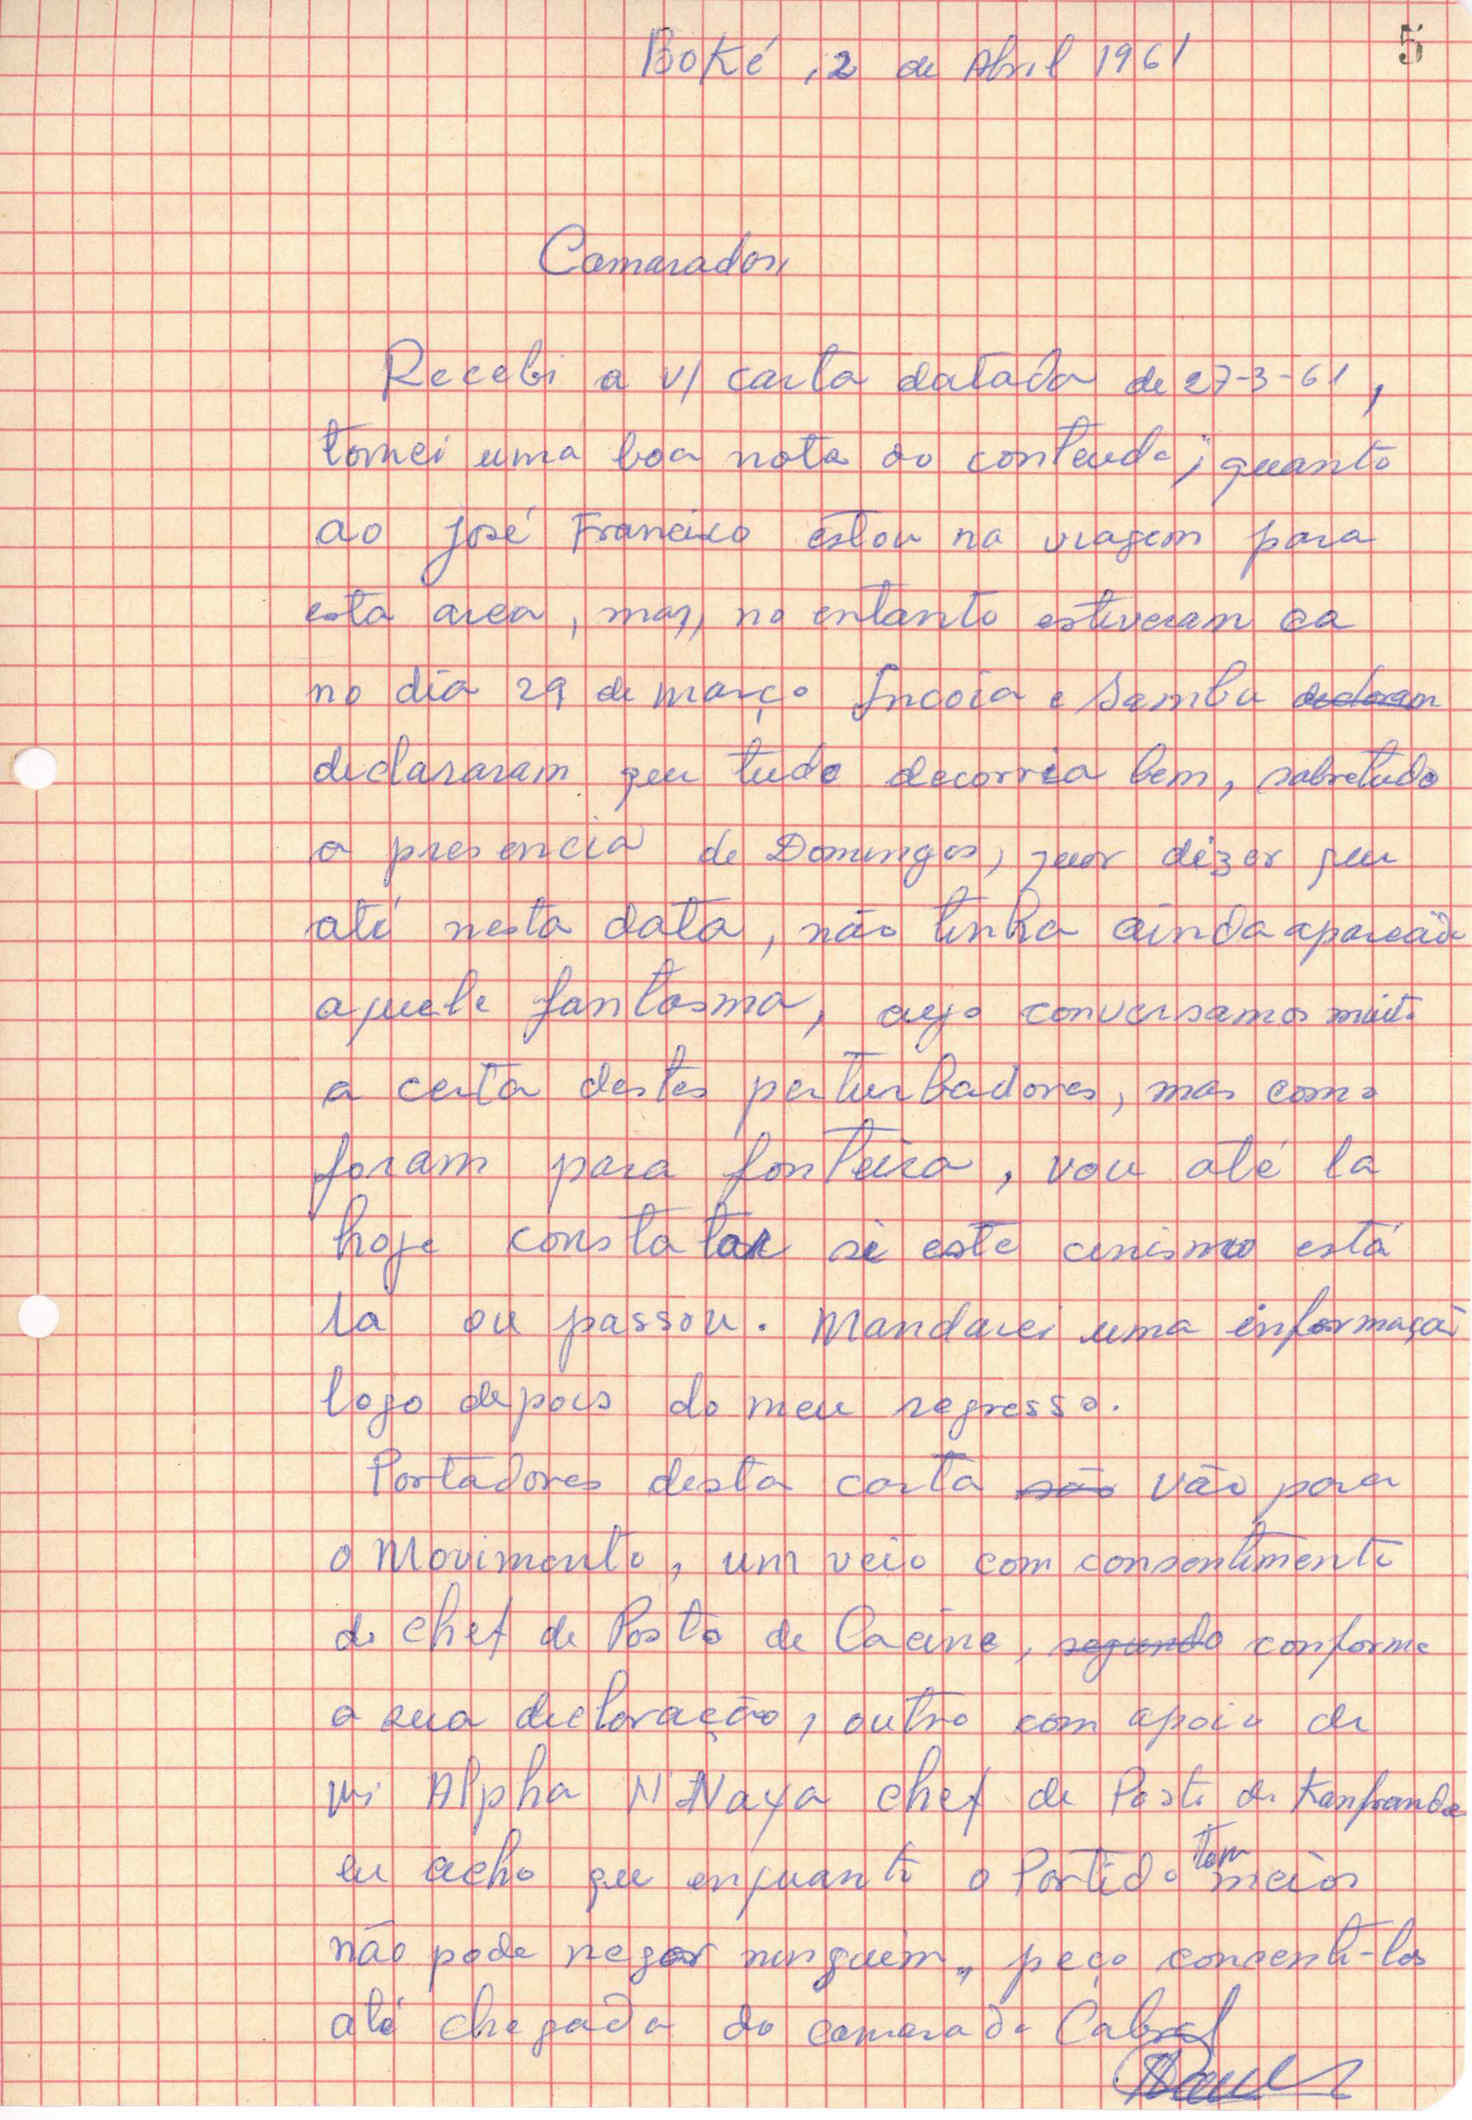 5
Boké, 2 de Abril 1961
Camaradas,
Recebi a v/ carta datada de 27-3-61,
tomei uma boa nota ao conteudo; quanto
ao José Francisco estou na viagem para
esta area, mas, no entanto estiveram ca
no dia 29 de março Incoia e Sambu declaram
declararam que tudo decorria bem, sobretudo
a presencia de Domingos, quer dizer que
até nesta data, não tinha ainda aparecido
aquele fantasma, cujo conversamos muito
a certa destes perturbadores, mas como
foram para fonteira, vou até la
hoje constatar si este cinismo está
la ou passou. Mandarei uma informação
logo depois do meu regresso.
Portadores desta carta são vão para
o Movimento, um veio com consentimento
do chef de Posto de Cacine, segundo conforme
a sua declaração, outro com apoio de
Alpha N'Naya chef de Posto de Kanfranda
eu acho que enquanto o Partido tem meios
não pode negar ninguem, peço consenti-los
até chegada do camarada Cabral